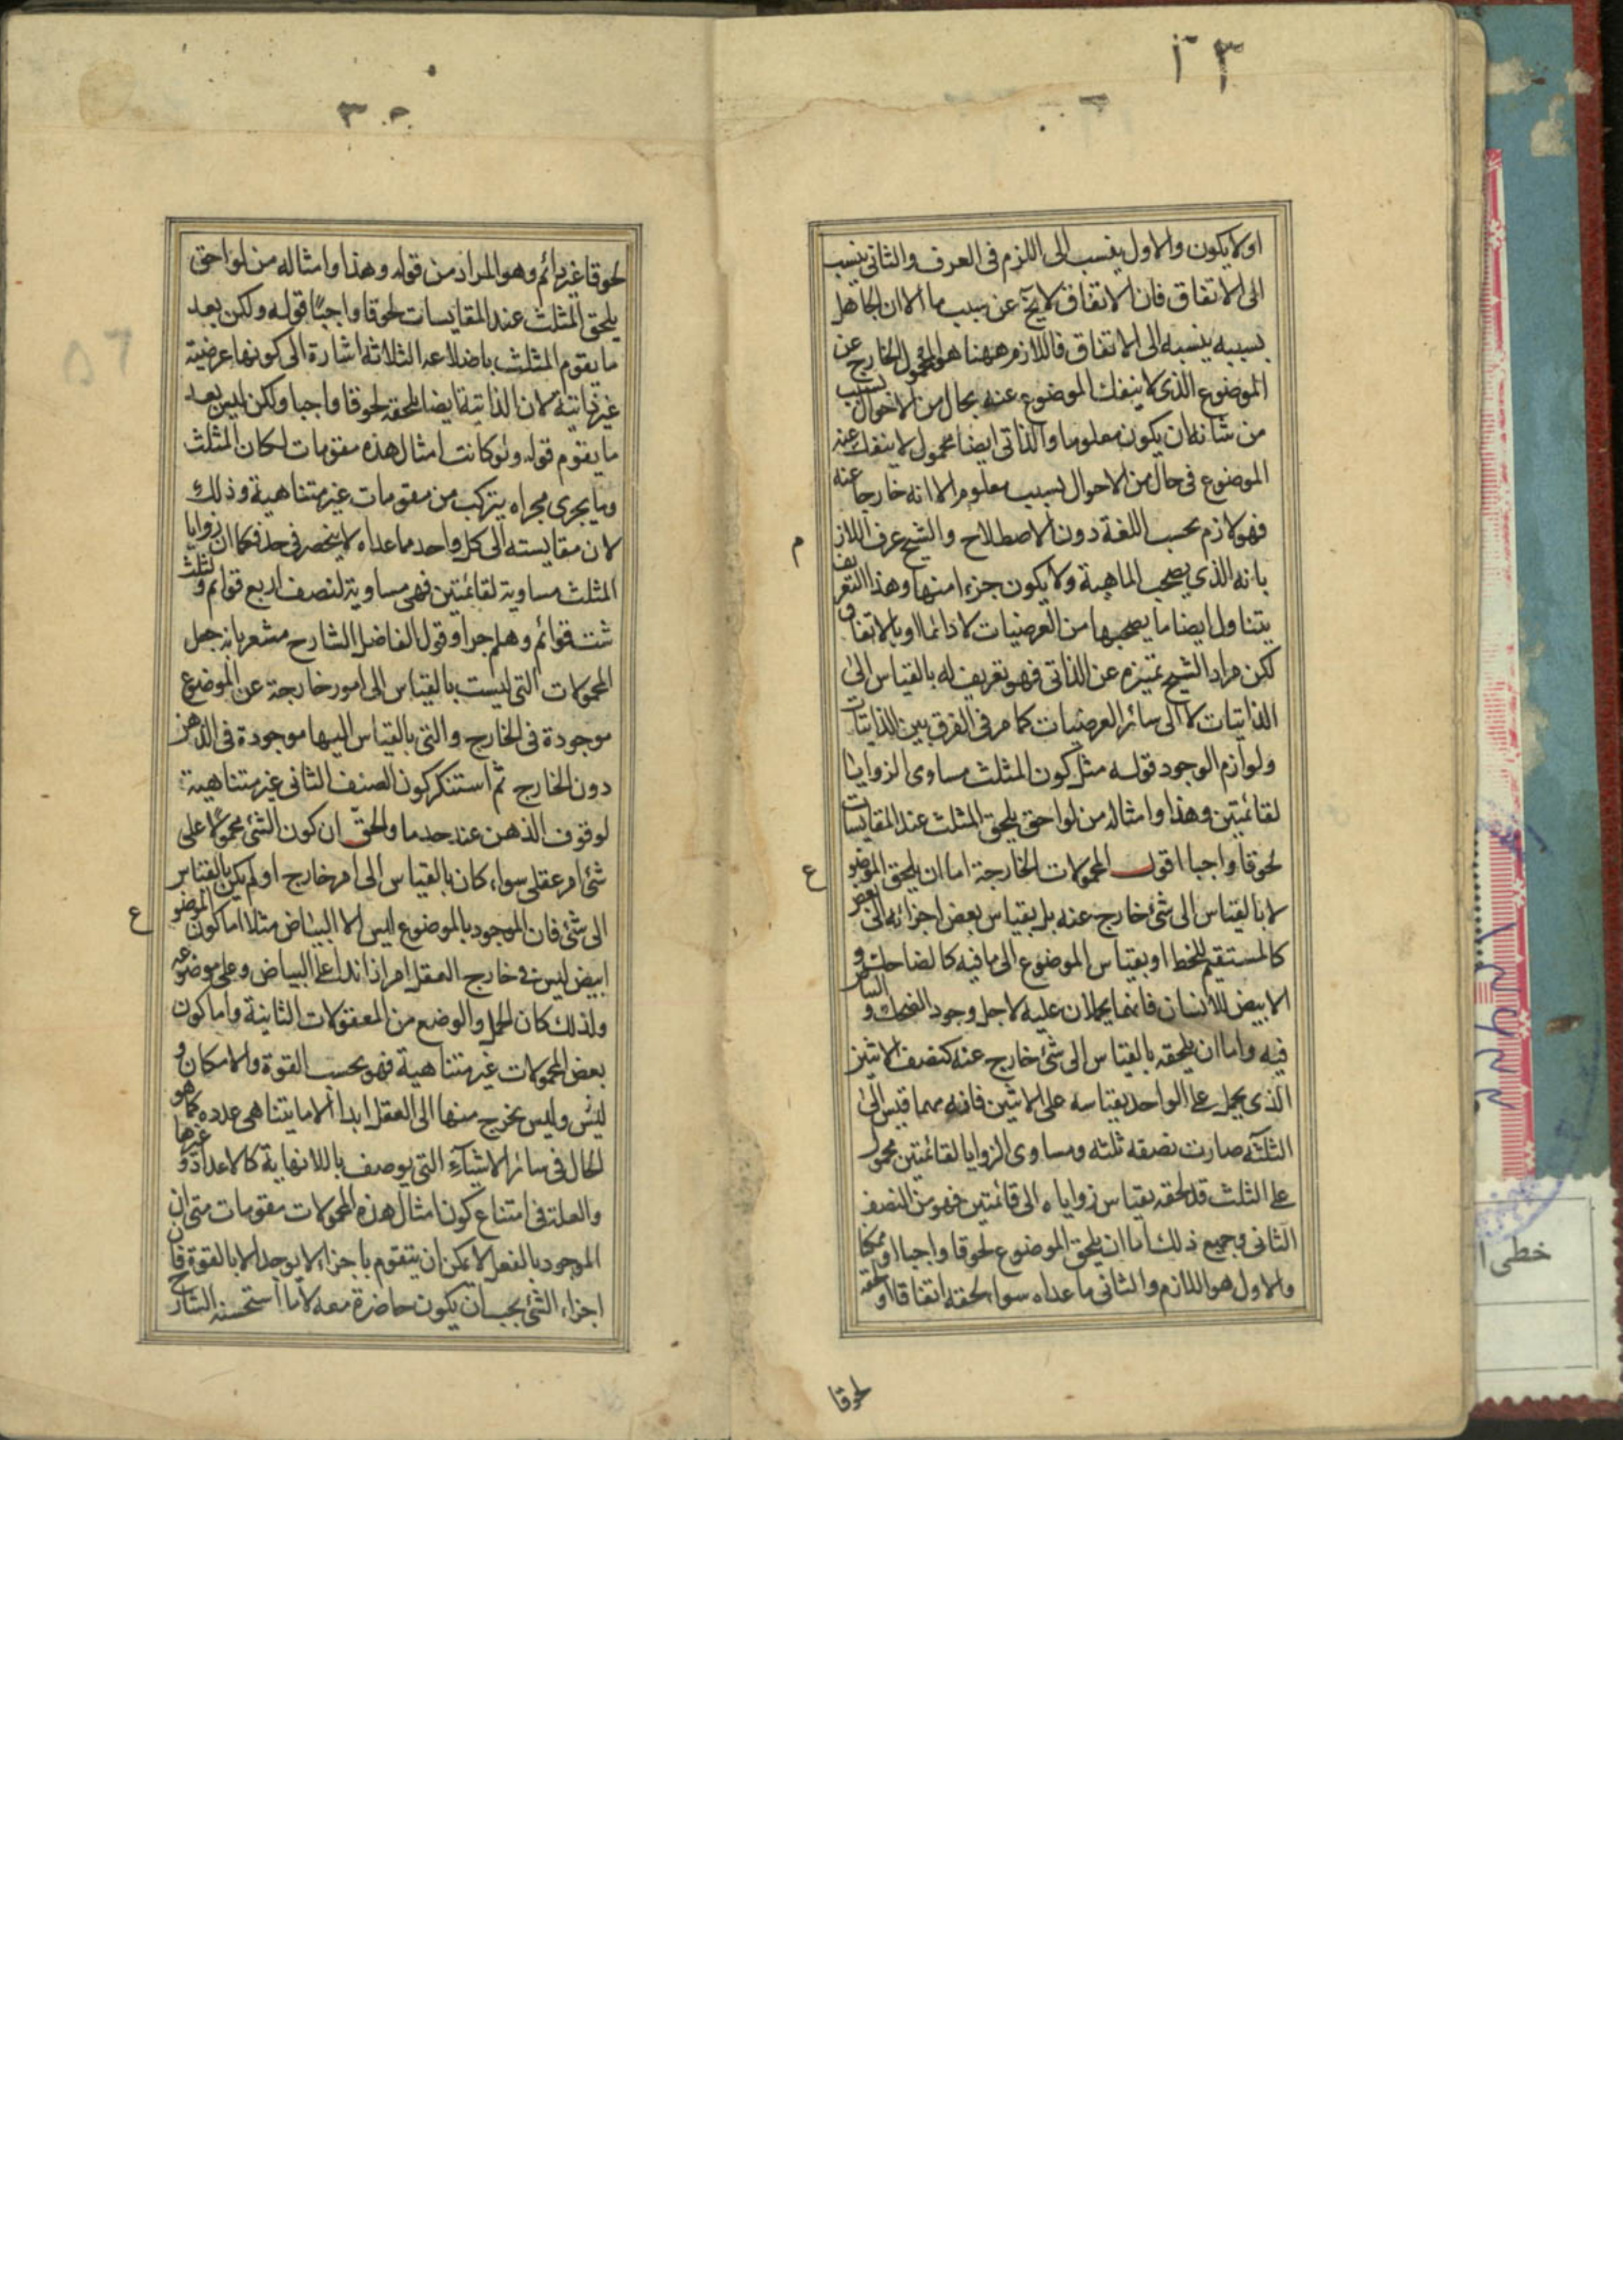 ٣١
او لا يكون والاول ينسب الى اللزم فى العرف والثانى ينسب
الى الاتفاق فان الاتفاق لا يخ عن سبب ما الا ان الجاهل
بسببه ينسبه الى الاتفاق فاللازم ههنا هو المحمول الخارج عن
الموضوع الذى لا ينفك الموضوع عنه بحال من الاحوال بسبب
من شانه ان يكون معلوما والذاتى ايضا محمول لا ينفك عنه
الموضوع فى حال من الاحوال بسبب معلوم الا انه خارجا عنه
فهو لازم بحسب اللغة دون الاصطلاح والشيخ عرف اللاز م
بانه الذى يصحب الماهية ولا يكون جزءا منها وهذا التعريف
يتناول ايضا ما يصحبها من العرضيات لا دائما او بالاتفاق
لكن مراد الشيخ تميزه عن الذاتى فهو تعريف له بالقياس الى
الذاتيات لا الى سائر العرضيات كما مر فى الفرق بين الذاتيات
ولوازم الوجود قوله مثل كون المثلث مساوى الزوايا
لقائمتين وهذا وامثاله من لواحق يلحق المثلث عند المقايسات
لحوقا واجبا اقول المحمولات الخارجة اما ان يلحق الموضو ع
لا بالقياس الى شئ خارج عنه بل بقياس بعض اجزائه الى بعض
كالمستقيم للخط او بقياس الموضوع الى ما فيه كالضاحك و
الابيض للانسان فانهما يحملان عليه لاجل وجود الضحك و البياض
فيه واما ان يلحقه بالقياس الى شئ خارج عنه كنصف الاثنين
الذى يحمل على الواحد بقياسه على الاثنين فانه مهما قيس الى
الثلثة صارت نصفه ثلثه ومساوى الزوايا لقائمتين محمول
على المثلث قد لحقه بقياس زواياه الى قائمتين فهو من النصف
الثانى وجميع ذلك اما ان يلحق الموضوع لحوقا واجبا او ممكنا
والاول هو اللازم والثانى ما عداه سواء لحقه اتفاقا او لحقه
لحوقا
٣٠
لحوقا غير دائم وهو المراد من قوله وهذا وامثاله من لواحق
يلحق المثلث عند المقايسات لحوقا واجبًا قوله ولكن بعد
ما يقوم المثلث باضلاعه الثلاثة اشارة الى كونها عرضية
غير ذاتية لان الذاتية ايضا يلحقه لحوقا واجبا ولكن ليس بعد
ما يقوم قوله ولو كانت امثال هذه مقومات لكان المثلث
وما يجرى مجراه يتركب من مقومات غير متناهية وذلك
لان مقايسته الى كل واحد مما عداه لا ينحصر فى حد فكما ان زوايا
المثلث مساوية لقائمتين فهى مساوية لنصف اربع قوائم و لثلث
ست قوائم وهلم جرا وقول الفاضل الشارح مشعر بانه جعل
المحمولات التى ليست بالقياس الى امور خارجة عن الموضوع
موجودة فى الخارج والتى بالقياس اليها موجودة فى الذهن
دون الخارج ثم استنكر كون الصنف الثانى غير متناهية
لوقوف الذهن عند حد ما والحق ان كون الشئ محمولا على
شئ امر عقلى سواء كان بالقياس الى امر خارج او لم يكن بالقياس
الى شئ فان الموجود بالموضوع ليس الا البياض مثلا اما كون الموضو ع
ابيض ليس فى خارج العقل امرا زائدا على البياض وعلى موضوعه
ولذلك كان الحمل والوضع من المعقولات الثانية واما كون
بعض المحمولات غير متناهية فهو بحسب القوة والامكان و
ليس وليس يخرج منها الى العقل ابدا الا ما يتناهى عدده كما هو
الحال فى سائر الاشياء التى يوصف باللانهاية كالاعداد و غيرها
والعلة فى امتناع كون امثال هذه المحمولات مقومات متى ان
الموجود بالفعل لا يمكن ان يتقوم باجزاء لا يوجد الا بالقوة فان
اجزاء الشئ يجب ان يكون حاضرة معه لا ما استحسنه الشارح
خطى